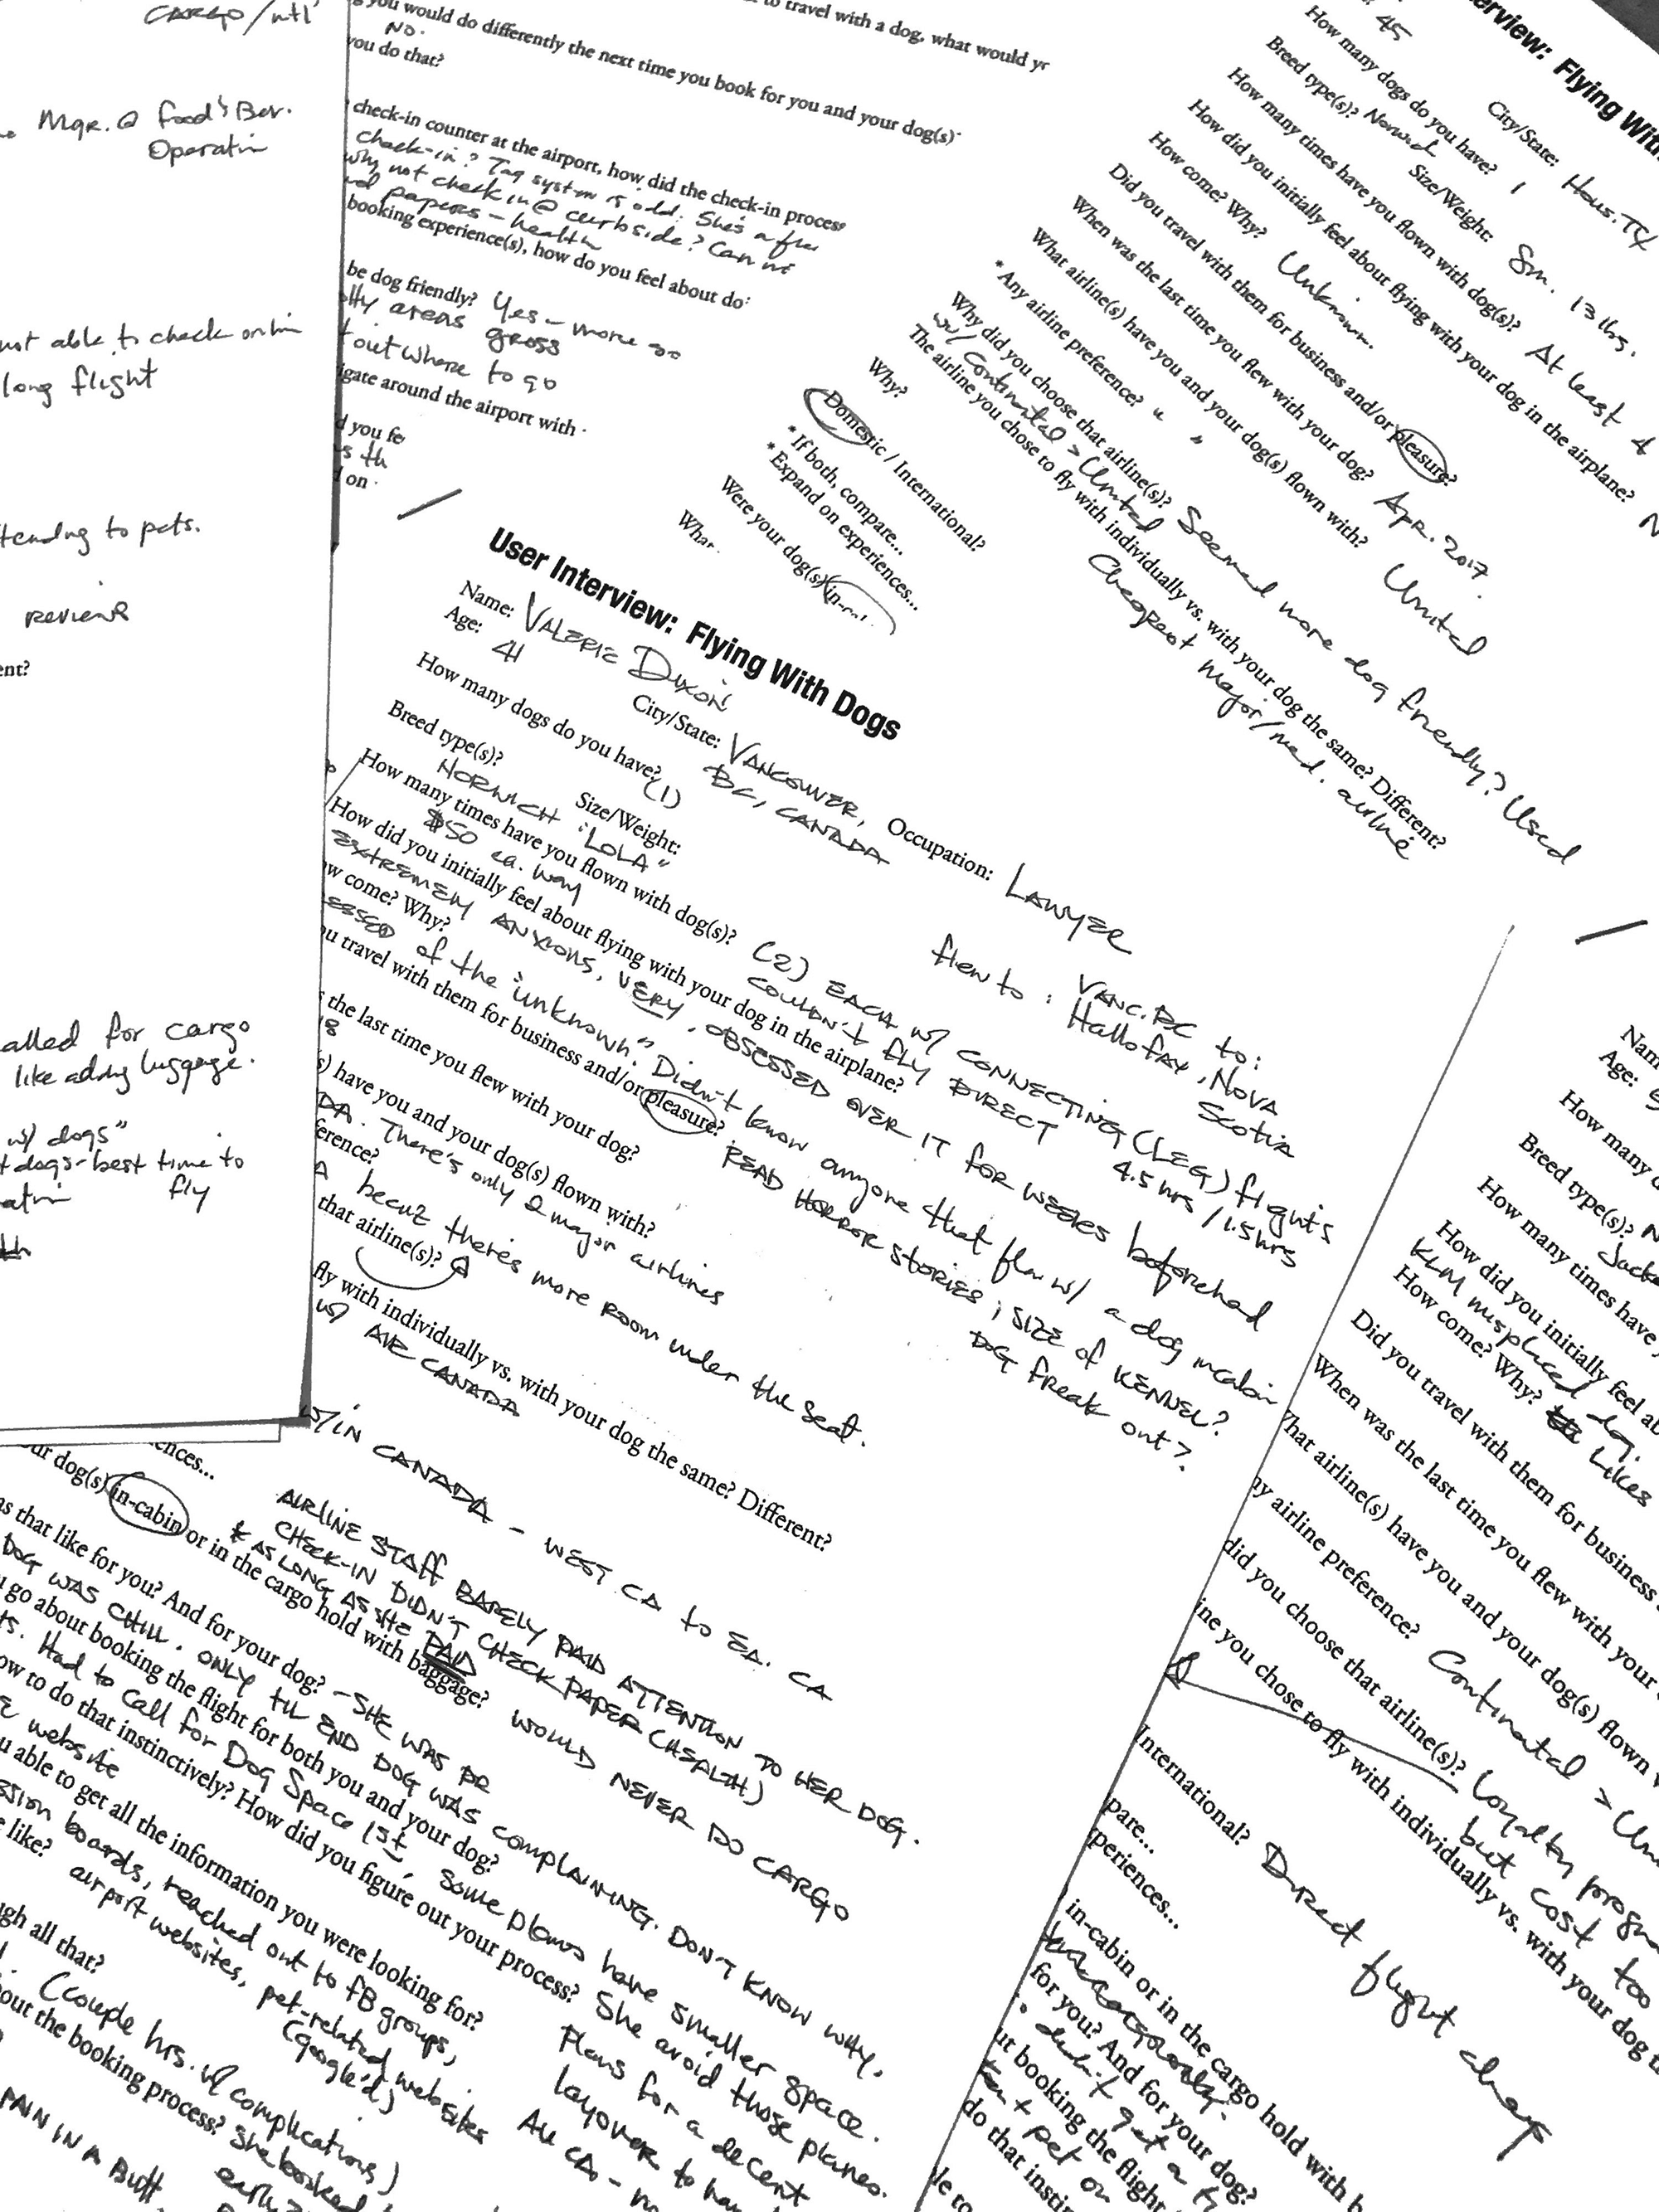 CARGO/intl
Mgr. @ Food & Bev.
Operatin
not able to check onlin
long flight
tending to pets.
reviews
ent?
alled for cargo
like adding luggage.
w/ dogs"
dogs - best time to
fly
to travel with a dog, what would yo
you would do differently the next time you book for you and your dog(s)
No.
you do that?
check-in counter at the airport, how did the check-in process
check-in? Tag system is old. She's a
why not check in @ curbside? Can
papers - health
booking experience(s), how do you feel about do
be dog friendly? Yes - more so
areas gross
out where to go
gate around the airport with
d you fe
s th
d on
erview: Flying With
45
City/State: Hous. TX
How many dogs do you have? 1
Breed type(s)? Norwich Size/Weight: Sm. 13 lbs.
How many times have you flown with dog(s)? At least 4
How did you initially feel about flying with your dog in the airplane? N
How come? Why? Unknown.
Did you travel with them for business and/or pleasure?
When was the last time you flew with your dog? Apr. 2017
What airline(s) have you and your dog(s) flown with? United
* Any airline preference? " "
Why did you choose that airline(s)? Seemed more dog friendly? Used
w/ Continental > United
The airline you chose to fly with individually vs. with your dog the same? Different?
Why? Cheapest major/med. airline
Domestic / International?
* If both, compare...
* Expand on experiences...
Were your dog(s) in-
What
User Interview: Flying With Dogs
Name: VALERIE DIXON
City/State: VANCOUVER,
BC, CANADA
Occupation: LAWYER
Age: 41
How many dogs do you have? (1)
Breed type(s)? Size/Weight:
NORWICH "LOLA"
flew to: VANC. BC to:
Hallofax, NOVA
SCOTIA
How many times have you flown with dog(s)? (2) EACH w/ CONNECTING (LEG) flights
$50 ea. way
COULDN'T FLY DIRECT 4.5 hrs / 1.5 hrs
How did you initially feel about flying with your dog in the airplane?
EXTREMEMLY ANXIOUS, VERY, OBSESSED OVER IT FOR WEEKS beforehad
ow come? Why?
of the "unknown." Didn't know anyone that flew w/ a dog incabin
ou travel with them for business and/or pleasure? READ HORROR STORIES; SIZE of KENNEL?
DOG freak out?
s the last time you flew with your dog?
18
s) have you and your dog(s) flown with?
DA. There's only 2 major airlines
ference?
A becuz there's more room under the seat.
that airline(s)?
fly with individually vs. with your dog the same? Different?
w/ AIR CANADA
w/in CANADA - WEST. CA to EA. CA
ences...
AIRLINE STAFF BARELY PAID ATTENTION TO HER DOG.
CHECK-IN DIDN'T CHECK PAPER (HEALTH)
* AS LONG AS SHE PAID
our dog(s) in-cabin or in the cargo hold with baggage? WOULD NEVER DO CARGO
as that like for you? And for your dog? - SHE WAS
DOG WAS CHILL. ONLY TIL END DOG WAS COMPLAINING. DON'T KNOW WHY.
u go about booking the flight for both you and your dog?
Had to call for Dog Space 1st, Some planes have smaller space.
ow to do that instinctively? How did you figure out your process? She avoid those planes.
website
Plans for a decent
layover to
u able to get all the information you were looking for?
ssion boards, reached out to FB groups,
e like? airport websites, pet-related websites
(google'd)
gh all that?
(couple hrs. w/ complications)
out the booking process? She booked
early
PAIN IN A Butt.
Nam
Age: 5
How many d
Breed type(s)? N
Jack
How many times have y
How did you initially feel ab
KLM misplaced dog.
How come? Why? Likes
Did you travel with them for business
When was the last time you flew with your
What airline(s) have you and your dog(s) flown
ny airline preference? Continental > Un
did you choose that airline(s)? Loyalty progra
but cost too
ine you chose to fly with individually vs. with your dog t
International? Direct flight
pare...
xperiences...
in-cabin or in the cargo hold with b
for you? And for your dog?
didn't get a
ut booking the flight
pet on
do that instin
le to